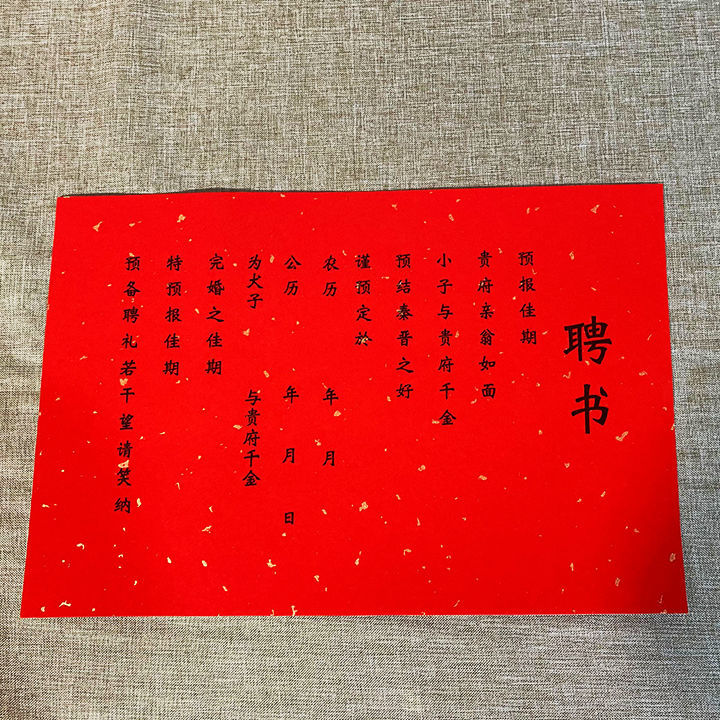 聘书
预报佳期
贵府亲翁如面
小子与贵府千金
预结秦晋之好
谨预定於
农历 年 月
公历 年 月 日
为犬子 与贵府千金
完婚之佳期
特预报佳期
预备聘礼若干望请笑纳